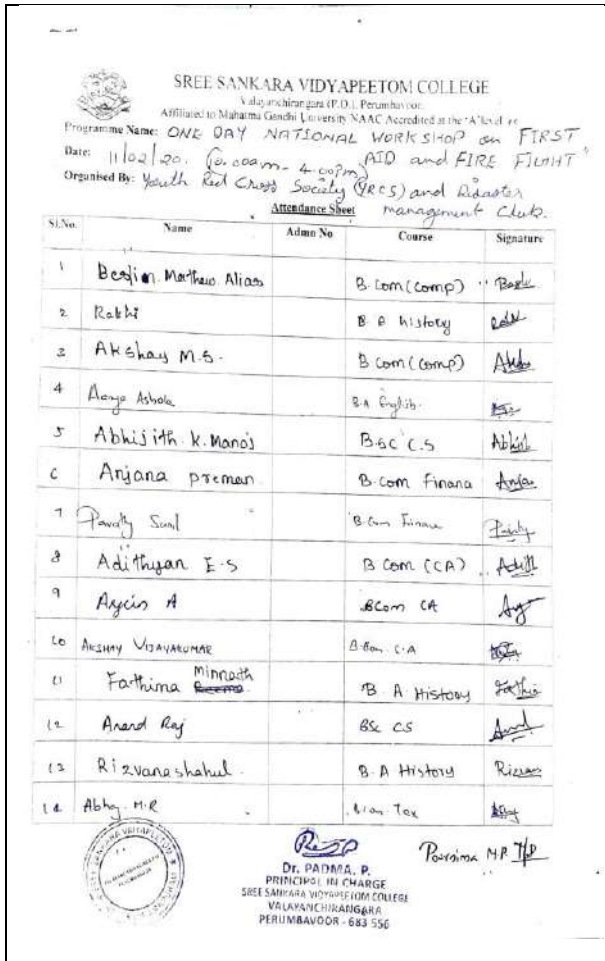 SREE SANKARA VIDYAPEETOM COLLEGE
Valayanchirangara (P.O.), Perumbavoor
Affiliated to Mahatma Gandhi University NAAC Accredited at the 'A' level
Programme Name: ONE DAY NATIONAL WORKSHOP on FIRST
AID and FIRE FIGHT"
Date: 11/02/20. (10.00am - 4.00pm)
Organised By: Youth Red Cross Society (YRCS) and Disaster
management Club.
Attendance Sheet
Sl.No. Name Admn No Course Signature
1 Mathew Alias B.Com (Comp)
2 Rakhi B A history
3 Akshay M.S. B com (comp)
4 B.A English
5 Abhijith K. Manoj B.SC C.S Abhijith
6 Anjana preman B.com Finana
7 Sunil B.Com Finance
8 Adithyan E.S B Com (CA)
9 A BCom CA
10 AKSHAY VIJAYAKUMAR B.Com. C.A
11 Fathima Minnath B A History
12 Anand Raj BSc CS
13 Rizvaneshahul. B.A History
14 Abhay. M.R Tax
Dr. PADMA. P.
PRINCIPAL IN CHARGE
SREE SANKARA VIDYAPEETOM COLLEGE
VALAYANCHIRANGARA
PERUMBAVOOR - 683 556
Pournima M.P.